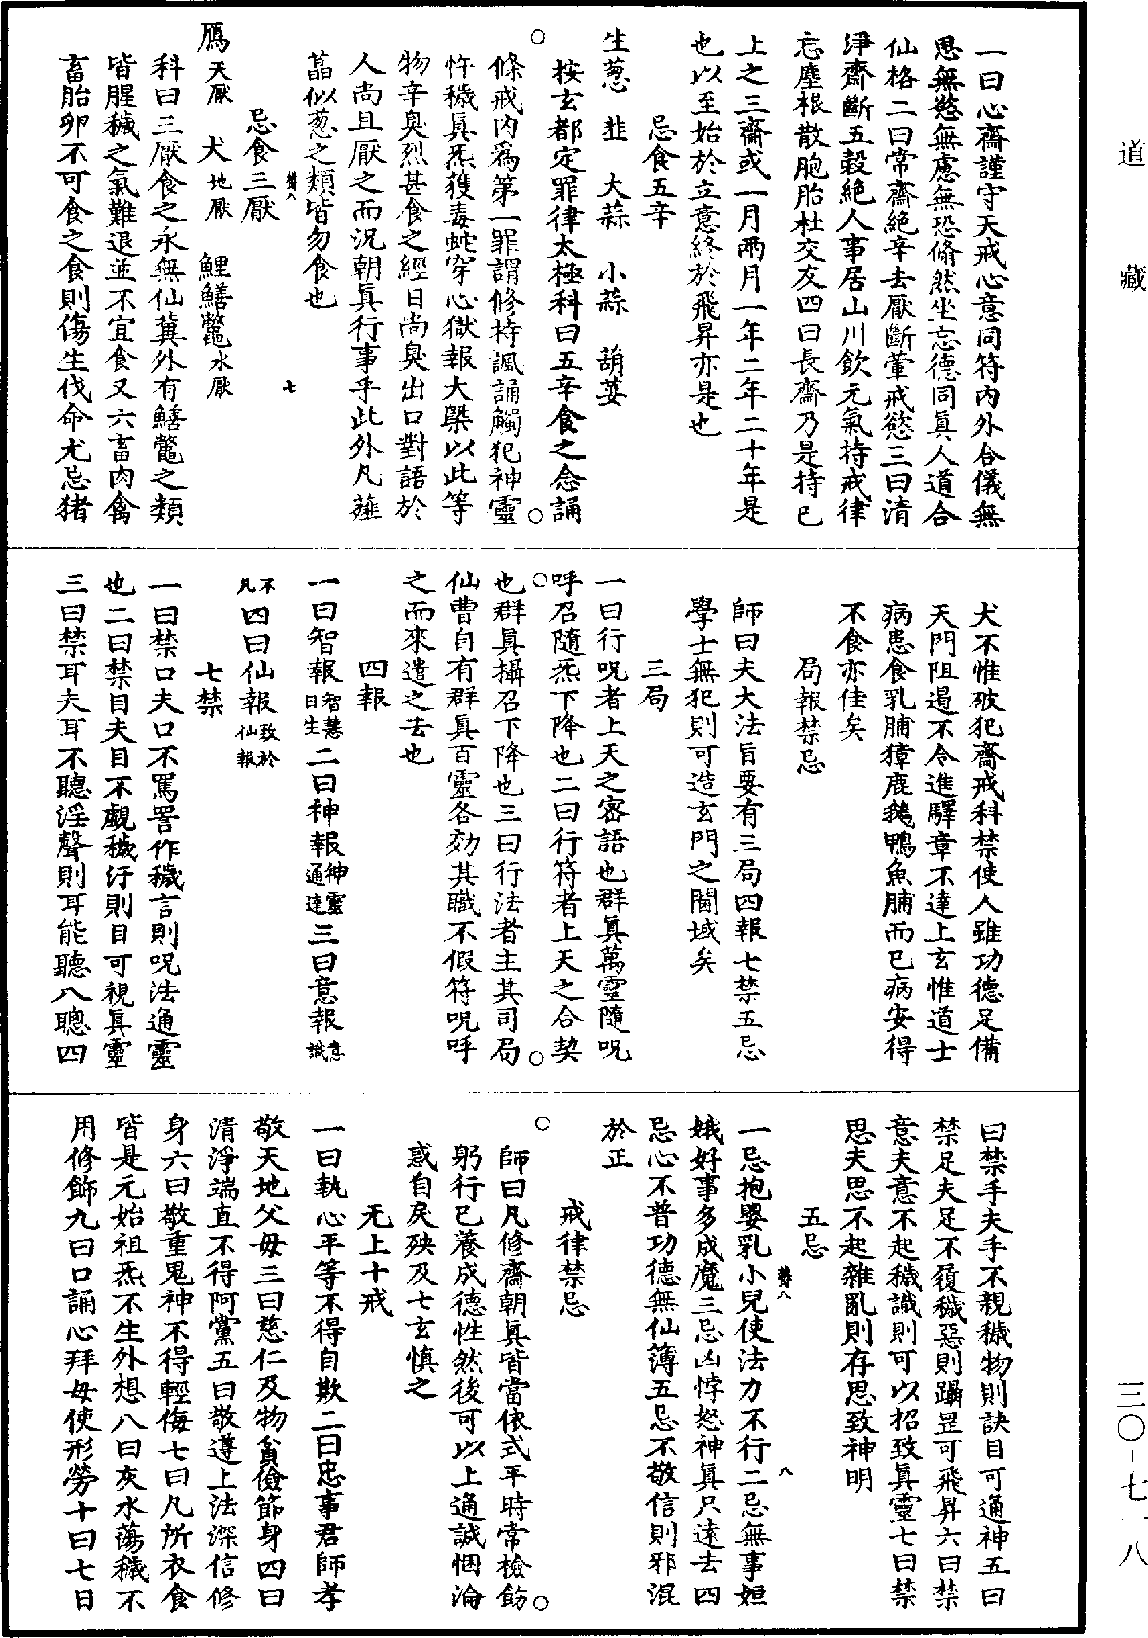 道藏
一曰心齋謹守天戒心意同符內外合儀無
思無慾無慮無恐翛然坐忘德同眞人道合
仙格二曰常齋絶辛去厭斷葷戒慾三曰清
淨齋斷五穀絶人事居山川飲元氣持戒律
忘塵根散胞胎杜交友四曰長齋乃是持巳
上之三齋或一月兩月一年二年二十年是
也以至始於立意終於飛昇亦是也
忌食五辛
生葱　韭　大蒜　小蒜　葫荽
按玄都定罪律太極科曰五辛食之念誦
條戒內爲第一罪謂修持諷誦觸犯神靈
忤穢眞炁獲毒蛇穿心獄報大槩以此等
物辛臭烈甚食之經日尚臭出口對語於
人尚且厭之而況朝眞行事乎此外凡薤
藠似葱之類皆勿食也
七
忌食三厭
鴈天厭　犬地厭　鯉鱔鼈水厭
科曰三厭食之永無仙冀外有鱔鼈之類
皆腥穢之氣難退並不宜食又六畜肉禽
畜胎卵不可食之食則傷生伐命尤忌猪
犬不惟破犯齋戒科禁使人雖功德足備
天門阻遏不令進驛章不達上玄惟道士
病患食乳脯獐鹿鵝鴨魚脯而已病安得
不食亦佳矣
局報禁忌
師曰夫大法旨要有三局四報七禁五忌
學士無犯則可造玄門之閫域矣
三局
一曰行呪者上天之密語也群眞萬靈隨呪
呼召隨炁下降也二曰行符者上天之合契
也群眞攝召下降也三曰行法者主其司局
仙曹自有群眞百靈各効其職不假符呪呼
之而來遣之去也
四報
一曰智報智慧日生二曰神報神靈通達三曰意報意識
不凡四曰仙報致於仙報
七禁
一曰禁口夫口不罵詈作穢言則呪法通靈
也二曰禁目夫目不覷穢汙則目可視眞靈
三曰禁耳夫耳不聽淫聲則耳能聽八聰四
曰禁手夫手不親穢物則訣目可通神五曰
禁足夫足不履穢惡則躡罡可飛昇六曰禁
意夫意不起穢識則可以招致眞靈七曰禁
思夫思不起雜亂則存思致神明
五忌
八
一忌抱嬰乳小兒使法力不行二忌無事姮
娥好事多成魔三忌凶悖怒神眞只遠去四
忌心不普功德無仙簿五忌不敬信則邪混
於正
戒律禁忌
師曰凡修齋朝眞皆當依式平時常檢飭
躬行已養成德性然後可以上通誠悃淪
惑自戾殃及七玄慎之
无上十戒
一曰執心平等不得自欺二曰忠事君師孝
敬天地父母三曰慈仁及物貧儉節身四曰
清淨端直不得阿黨五曰敬遵上法深信修
身六曰敬重鬼神不得輕侮七曰凡所衣食
皆是元始祖炁不生外想八曰灰水蕩穢不
用修飾九曰口誦心拜毋使形勞十曰七日
三〇—七一八